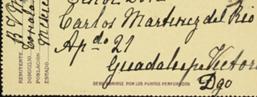 Señor Don
Carlos Martinez del Rio
Apdo 21
Guadalupe Victoria
Dgo
REMITENTE
DOMICILIO
POBLACION
ESTADO
DESPRENDASE POR LOS PUNTOS PERFORADOS